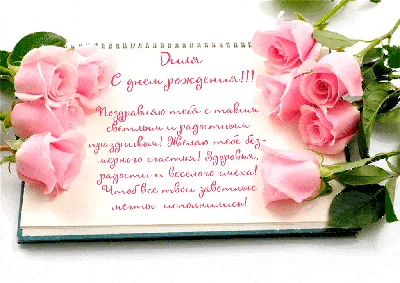 Диля
С днем рождения!!!
Поздравляю тебя с таким
светлым и радостным
праздником! Желаю тебе без-
мерного счастья! Здоровья,
радости и весёлого смеха!
Чтоб все твои заветные
мечты исполнились!